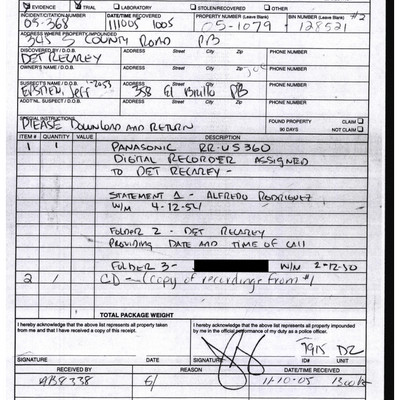 EVIDENCE TRIAL LABORATORY STOLEN/RECOVERED OTHER
INCIDENT/CITATION NUMBER DATE/TIME RECOVERED PROPERTY NUMBER (Leave Blank) BIN NUMBER (Leave Blank) #2
05-368 111005 1005 05-1079 128521
ADDRESS WHERE PROPERTY IMPOUNDED
345 S COUNTY ROAD PB
DISCOVERED BY / D.O.B. ADDRESS Street City Zip PHONE NUMBER
DET RECAREY
OWNER'S NAME / D.O.B. ADDRESS Street City Zip PHONE NUMBER
SUSPECT'S NAME / D.O.B. ADDRESS Street City Zip PHONE NUMBER
Jeff 358 El Brillo PB
ADDTN'L. SUSPECT / D.O.B. ADDRESS Street City Zip PHONE NUMBER
SPECIAL INSTRUCTIONS FOUND PROPERTY CLAIM
PLEASE DOWNLOAD AND RETURN 90 DAYS NOT CLAIM
ITEM # QUANTITY VALUE DESCRIPTION
1 1 PANASONIC RR-US360
DIGITAL RECORDER ASSIGNED
TO DET RECAREY -
STATEMENT 1 - ALFREDO RODRIGUEZ
W/M 4-12-54
FOLDER 2 - DET RECAREY
PROVIDING DATE AND TIME OF CALL
FOLDER 3- W/N 2-12-50
2 1 CD - (copy of recordings from #1
TOTAL PACKAGE WEIGHT
I hereby acknowledge that the above list represents all property taken from me and that I have received a copy of this receipt.
I hereby acknowledge that the above list represents all property impounded by me in the official performance of my duty as a police officer.
7915 D2
SIGNATURE DATE SIGNATURE ID# UNIT
RECEIVED BY REASON DATE TIME
11-10-05